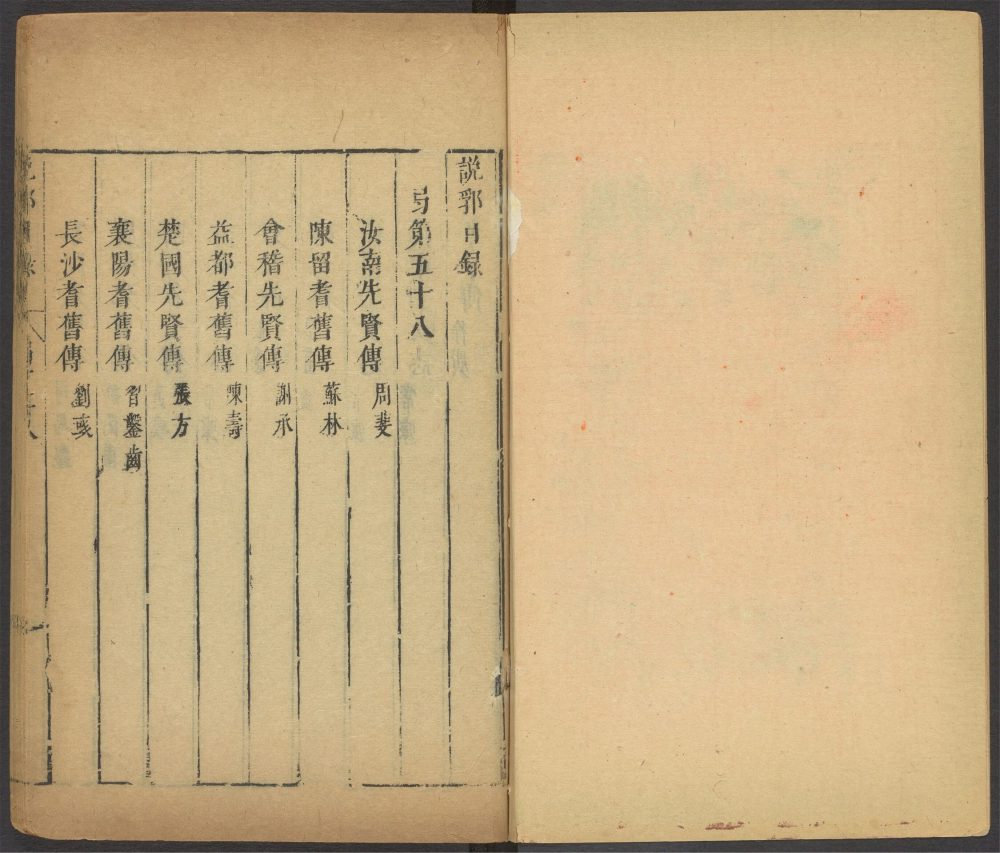 說郛目錄
弓第五十八
汝南先賢傳 周斐
陳留耆舊傳 蘇林
會稽先賢傳 謝承
益都耆舊傳 陳壽
楚國先賢傳 張方
襄陽耆舊傳 習鑿齒
長沙耆舊傳 劉彧